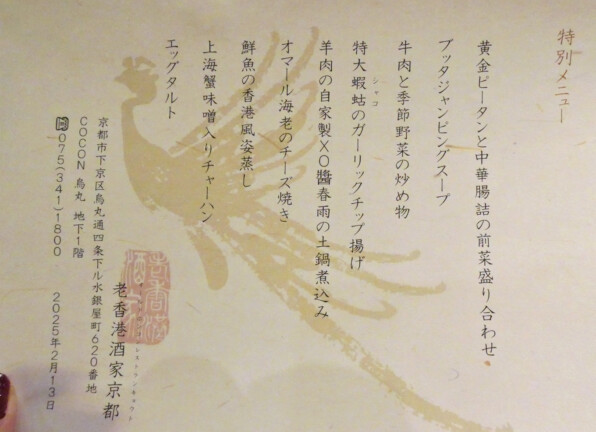 特別メニュー
黄金ピータンと中華腸詰の前菜盛り合わせ
ブッタジャンピングスープ
牛肉と季節野菜の炒め物
特大蝦蛄のガーリックチップ揚げ
シャコ
羊肉の自家製XO醬春雨の土鍋煮込み
オマール海老のチーズ焼き
鮮魚の香港風姿蒸し
上海蟹味噌入りチャーハン
エッグタルト
老香港酒家京都
京都市下京区烏丸通四条下ル水銀屋町620番地
COCON 烏丸 地下1階
075(341)1800
2025年2月13日